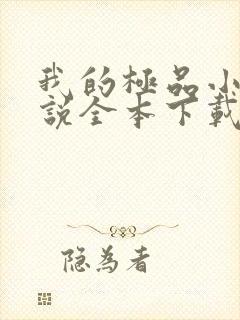 我的極品小
說全本下載
隐為者